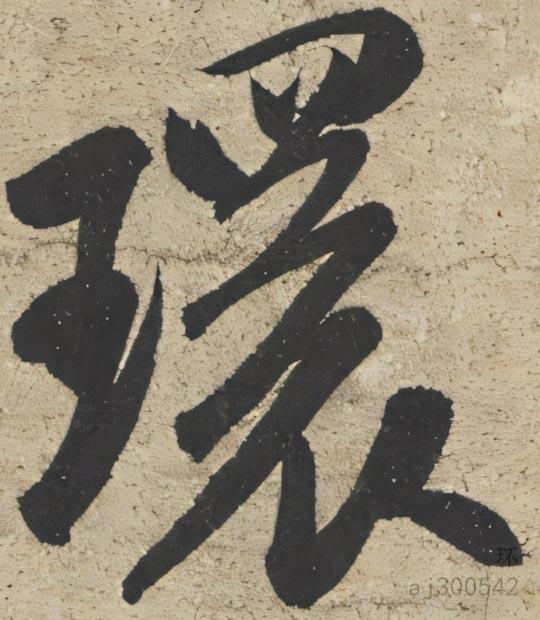 環
环
aj300542